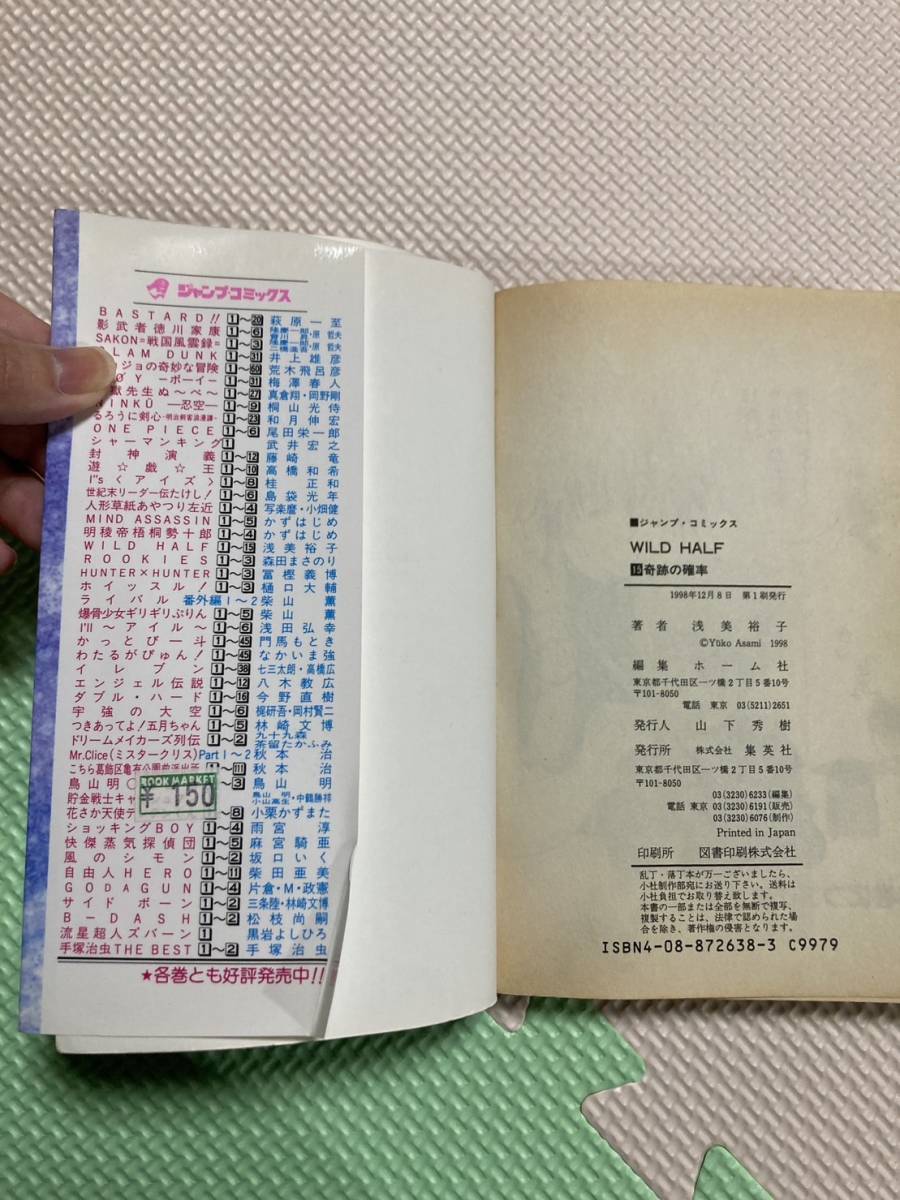 ジャンプ・コミックス
BASTARD!! 1〜20 萩原一至
影武者徳川家康 1〜6 隆慶一郎・原哲夫
SAKON=戦国風雲録= 1〜3 隆慶一郎・原哲夫 二橋進吾
LAM DUNK 1〜31 井上雄彦
ジョの奇妙な冒険 1〜60 荒木飛呂彦
Y ―ボーイ― 1〜31 梅澤春人
獄先生ぬ〜べ〜 1〜27 真倉翔・岡野剛
NINKŪ ―忍空― 1〜9 桐山光侍
るろうに剣心―明治剣客浪漫譚― 1〜23 和月伸宏
ONE PIECE 1〜6 尾田栄一郎
シャーマンキング 1 武井宏之
封神演義 1〜12 藤崎竜
遊☆戯☆王 1〜10 高橋和希
I"s〈アイズ〉 1〜8 桂正和
世紀末リーダー伝たけし! 1〜6 島袋光年
人形草紙あやつり左近 1〜4 写楽麿・小畑健
MIND ASSASSIN 1〜5 かずはじめ
明稜帝梧桐勢十郎 1〜4 かずはじめ
WILD HALF 1〜15 浅美裕子
ROOKIES 1〜3 森田まさのり
HUNTER×HUNTER 1〜3 冨樫義博
ホイッスル! 1〜3 樋口大輔
ライバル 番外編1〜2 柴山薫
爆骨少女ギリギリぷりん 1〜5 柴山薫
I'll 〜アイル〜 1〜6 浅田弘幸
かっとび一斗 1〜45 門馬もとき
わたるがぴゅん! 1〜45 なかいま強
イレブン 1〜38 七三太朗・高橋広
エンジェル伝説 1〜12 八木教広
ダブル・ハード 1〜16 今野直樹
宇強の大空 1〜6 梶研吾・岡村賢二
つきあってよ!五月ちゃん 1〜5 林崎文博
ドリームメイカーズ列伝 1〜2 九十九森 茶留たかふみ
Mr.Clice(ミスタークリス) Part1〜2 秋本治
こちら葛飾区亀有公園前派出所 〜111 秋本治
鳥山明○ 〜3 鳥山明
貯金戦士キャ 鳥山明 小山高生・中鶴勝祥
花さか天使テ 〜8 小栗かずまた
BOOK MARKET
¥150
ショッキングBOY 1〜4 雨宮淳
快傑蒸気探偵団 1〜5 麻宮騎亜
風のシモン 1〜2 坂口いく
自由人HERO 1〜11 柴田亜美
GODAGUN 1〜4 片倉・M・政憲
サイドボーン 1〜2 三条陸・林崎文博
B-DASH 1〜2 松枝尚嗣
流星超人ズバーン 1 黒岩よしひろ
手塚治虫THE BEST 1〜2 手塚治虫
★各巻とも好評発売中!!
■ジャンプ・コミックス
WILD HALF
15奇跡の確率
1998年12月8日 第1刷発行
著者 浅美裕子
©Yūko Asami 1998
編集 ホーム社
東京都千代田区一ツ橋2丁目5番10号
〒101-8050
電話 東京 03(5211)2651
発行人 山下秀樹
発行所 株式会社 集英社
東京都千代田区一ツ橋2丁目5番10号
〒101-8050
03(3230)6233(編集)
電話 東京 03(3230)6191(販売)
03(3230)6076(制作)
Printed in Japan
印刷所 図書印刷株式会社
乱丁・落丁本が万一ございましたら、
小社制作部宛にお送り下さい。送料は
小社負担でお取り替え致します。
本書の一部または全部を無断で複写、
複製することは、法律で認められた場
合を除き、著作権の侵害となります。
ISBN4-08-872638-3 C9979